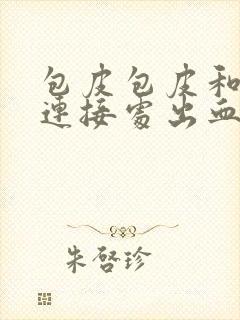 包皮包皮和
连接处出血
朱啓珍